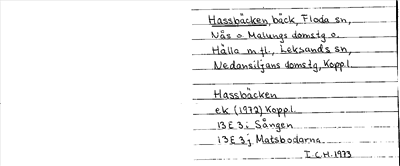 Hassbäcken, bäck, Floda sn,
Nås o Malungs domstg o.
Hålla m fl., Leksands sn,
Nedansiljans domstg, Koppl.
Hassbäcken
ek (1972) Koppl.
13E3i Sången
13E3j Matsbodarna
I.C.H. 1973